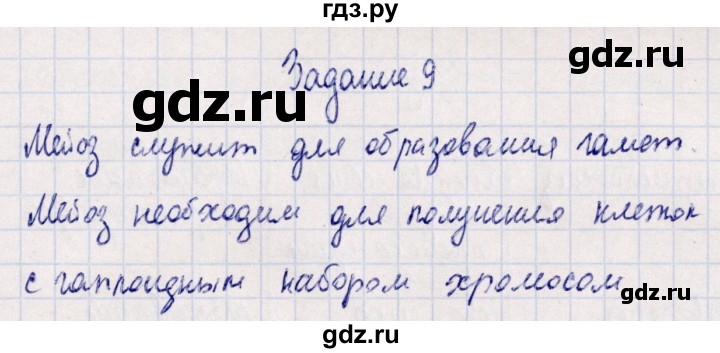 гдз.ру
Задание 9
gdz.ru
Мейоз служит для образования гамет.
Мейоз необходим для получения клеток
с гаплоидным набором хромосом
gdz.ru
gdz.ru